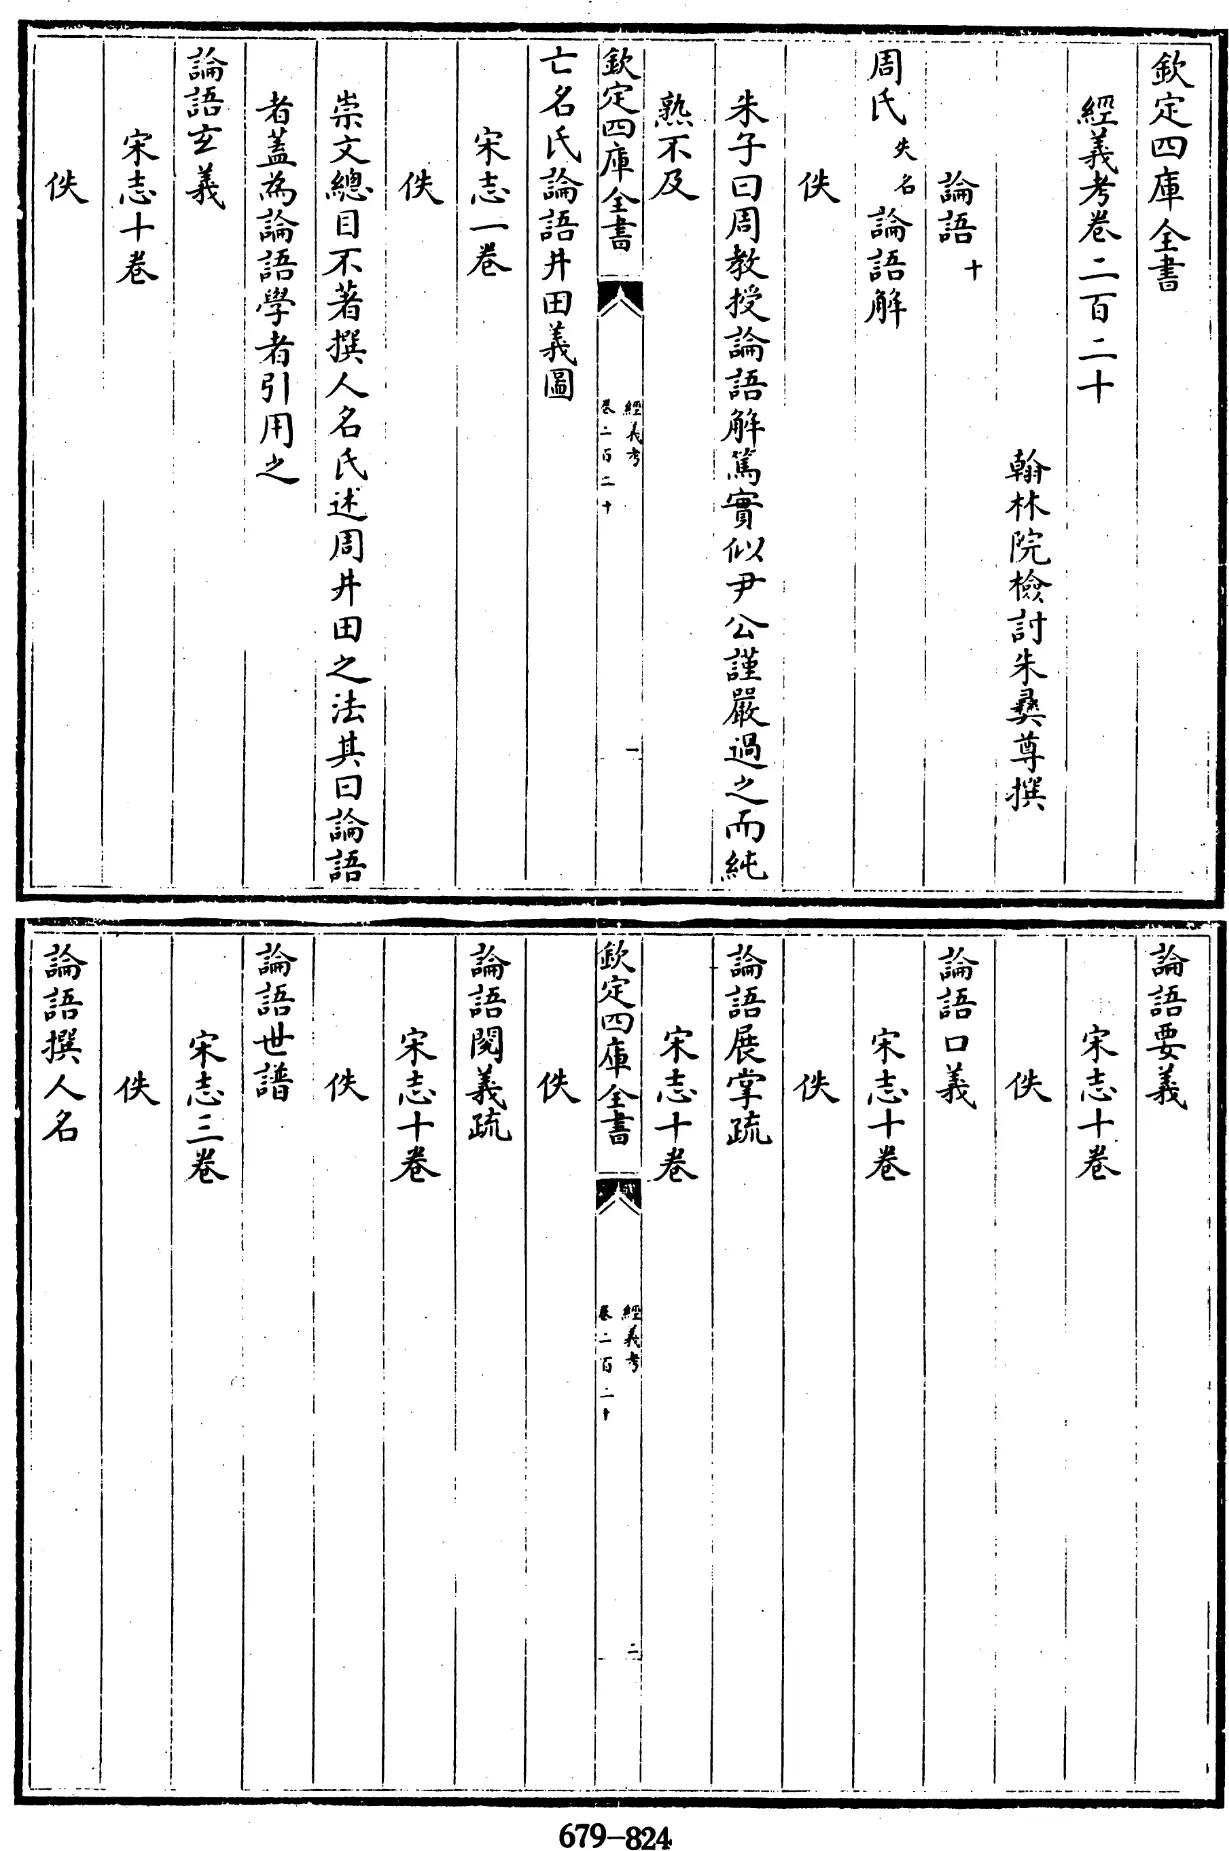 欽定四庫全書
經義考卷二百二十
翰林院檢討朱彝尊撰
論語十
周氏失名論語解
佚
朱子曰周教授論語解篤實似尹公謹嚴過之而純
熟不及
欽定四庫全書
經義考
卷二百二十
一
亡名氏論語井田義圖
宋志一卷
佚
崇文總目不著撰人名氏述周井田之法其曰論語
者蓋為論語學者引用之
論語玄義
宋志十卷
佚
論語要義
宋志十卷
佚
論語口義
宋志十卷
佚
論語展掌疏
宋志十卷
欽定四庫全書
經義考
卷二百二十
二
佚
論語閱義疏
宋志十卷
佚
論語世譜
宋志三卷
佚
論語撰人名
679-824